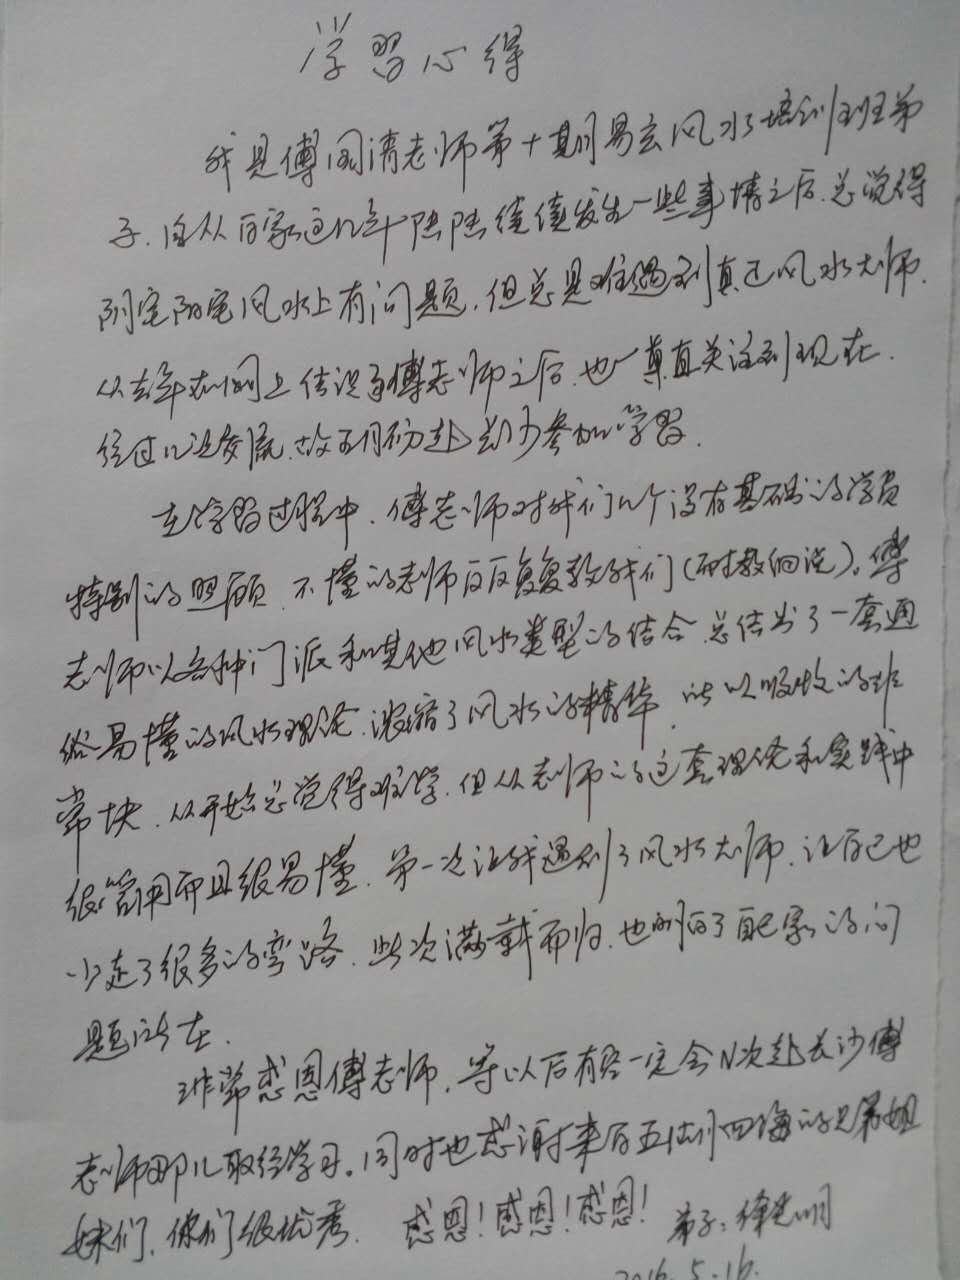 学习心得
我是傅国清老师第十期易玄风水培训班弟
子.自从百家这几年陆陆续续发生一些事情之后.总觉得
阴宅阳宅风水上有问题.但总是难遇到真正风水大师.
从去年在网上结识了傅老师之后.也一直关注到现在.
经过几次交流.故五月初赴长沙参加学习.
在学习过程中.傅老师对我们几个没有基础的学员
特别的照顾.不懂的老师反反复复教我们(耐教细说)。傅
老师以各种门派和其他风水类型的结合.总结出了一套通
俗易懂的风水理论.浓缩了风水的精华.所以吸收的非
常快.从开始总觉得难学.但从老师的这套理论和实践中
很管用而且很易懂.第一次让我遇到了风水大师.让自己也
少走了很多的弯路.此次满载而归.也明白了自己家的问
题所在.
非常感恩傅老师.等以后有空一定会N次赴长沙傅
老师那儿取经学习。同时也感谢来自五湖四海的兄弟姐
妹们.你们很优秀. 感恩!感恩!感恩! 弟子:徐先明
2016.5.16.